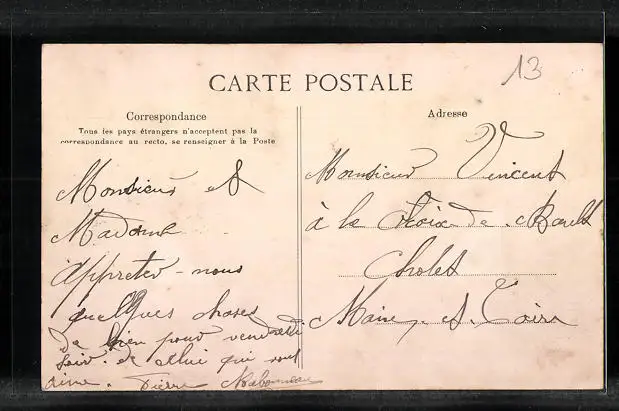 13
CARTE POSTALE
Correspondance
Tous les pays étrangers n'acceptent pas la
correspondance au recto, se renseigner à la Poste
Monsieur et
Madame
Appretez-nous
quelques choses
de bien pour vendredi
soir. et celui qui vous
aime. Pierre
Adresse
Monsieur Vincent
à la Croix de
Cholet
Maine et Loire